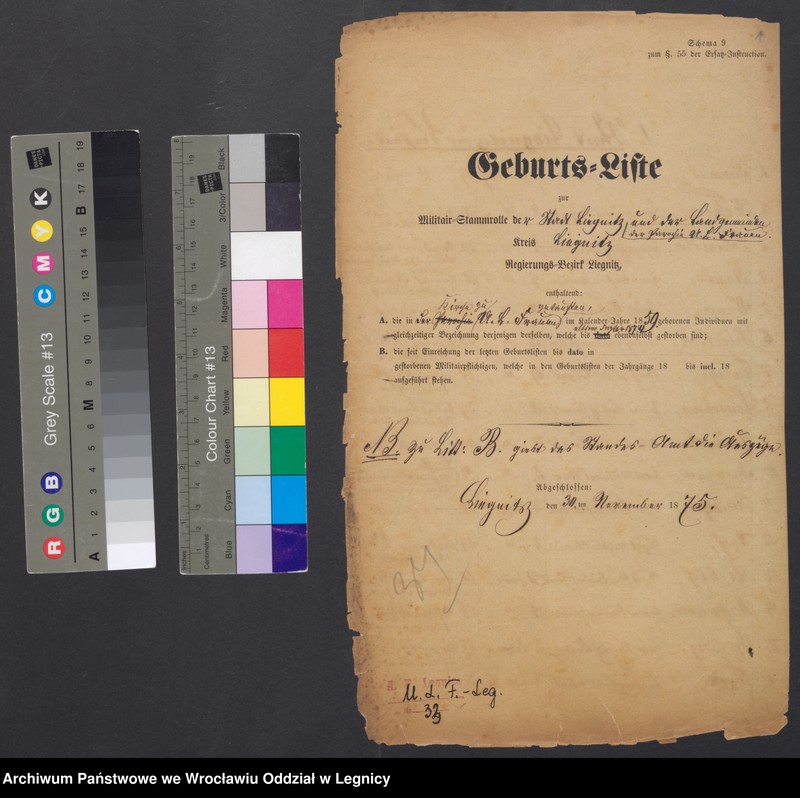 Schema 9
zum §. 55 der Ersatz-Instruction.
Geburts-Liste
zur
Militair-Stammrolle der Stadt Liegnitz, und der Landgemeinden
der Parochie U. L. Frauen.
Kreis Liegnitz
Regierungs-Bezirk Liegnitz,
enthaltend:
Kirche zu getauften,
A. die in der Parochie U. L. Frauen im Kalender-Jahre 18 geborenen Individuen mit
gleichzeitiger Bezeichnung derjenigen derselben, welche bis dato ebendaselbst gestorben sind;
B. die seit Einreichung der letzten Geburtslisten bis dato in
gestorbenen Militairpflichtigen, welche in den Geburtslisten der Jahrgänge 18 bis incl. 18
aufgeführt stehen.
NB. Zu Litt: B. giebt das Standes-Amt die Auszüge.
Abgeschlossen:
Liegnitz den 30. November 1875.
U. L. F.-Leg.
Grey Scale #13
R G B C M Y K
A 1 2 3 4 5 6 M 8 9 10 11 12 13 14 15 B 17 18 19
DANES PICTA
Colour Chart #13
Blue Cyan Green Yellow Red Magenta White 3/Color Black
Inches
Centimetres
Archiwum Państwowe we Wrocławiu Oddział w Legnicy